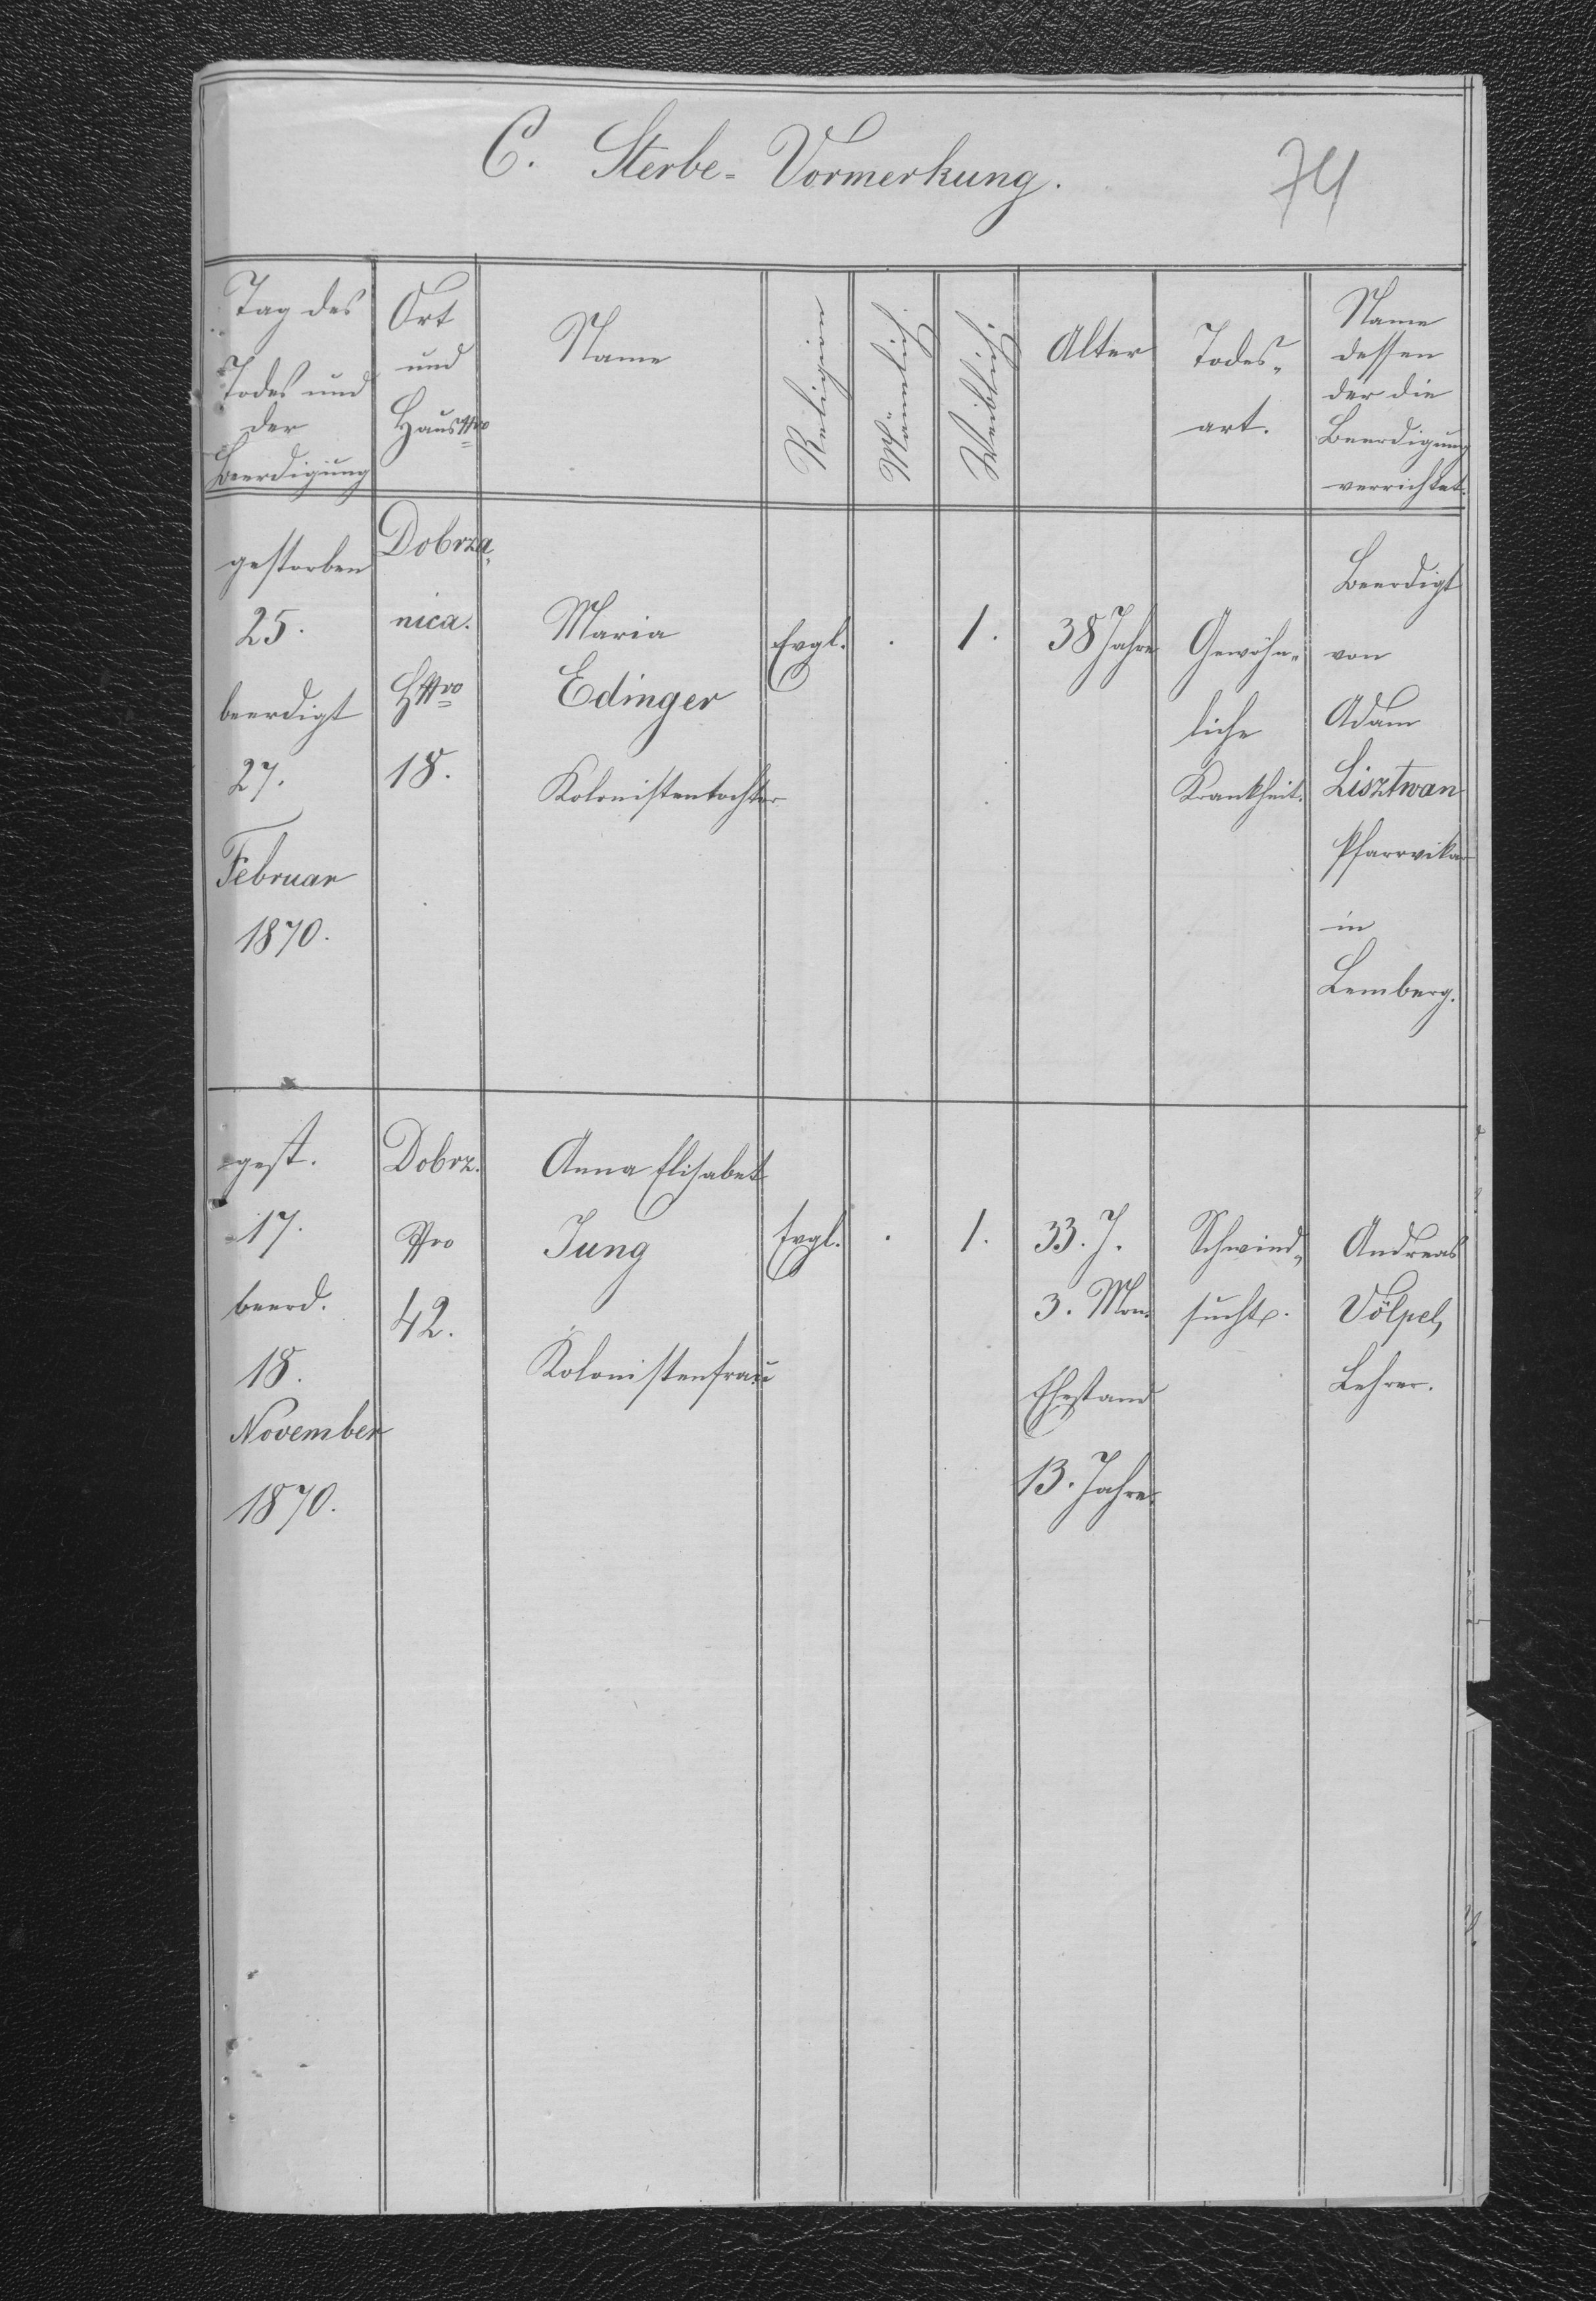 C. Sterbe- Vormerkung.
74
Tag des
Todes und
der
Beerdigung
Ort
und
Haus Nro
Name
Religion
Männlich.
Weiblich.
Alter
Todes-
art.
Name
dessen
der die
Beerdigung
verrichtet.
gestorben
25.
beerdigt
27.
Februar
1870.
Dobrza-
nica.
HNro
18.
Maria
Edinger
Kolonistentochter
Evgl.
.
1.
38 Jahre
Gewöhn-
liche
Krankheit.
Beerdigt
von
Adam
Lisztwan
Pfarrvikar
in
Lemberg.
gest.
17.
beerd.
18.
November
1870.
Dobrz.
Nro
42.
Anna Elisabet
Jung
Kolonistenfrau
Evgl.
.
1.
33. J.
3. Mon.
Ehestand
13. Jahre.
Schwind-
sucht.
Andreas
Völpel,
Lehrer.